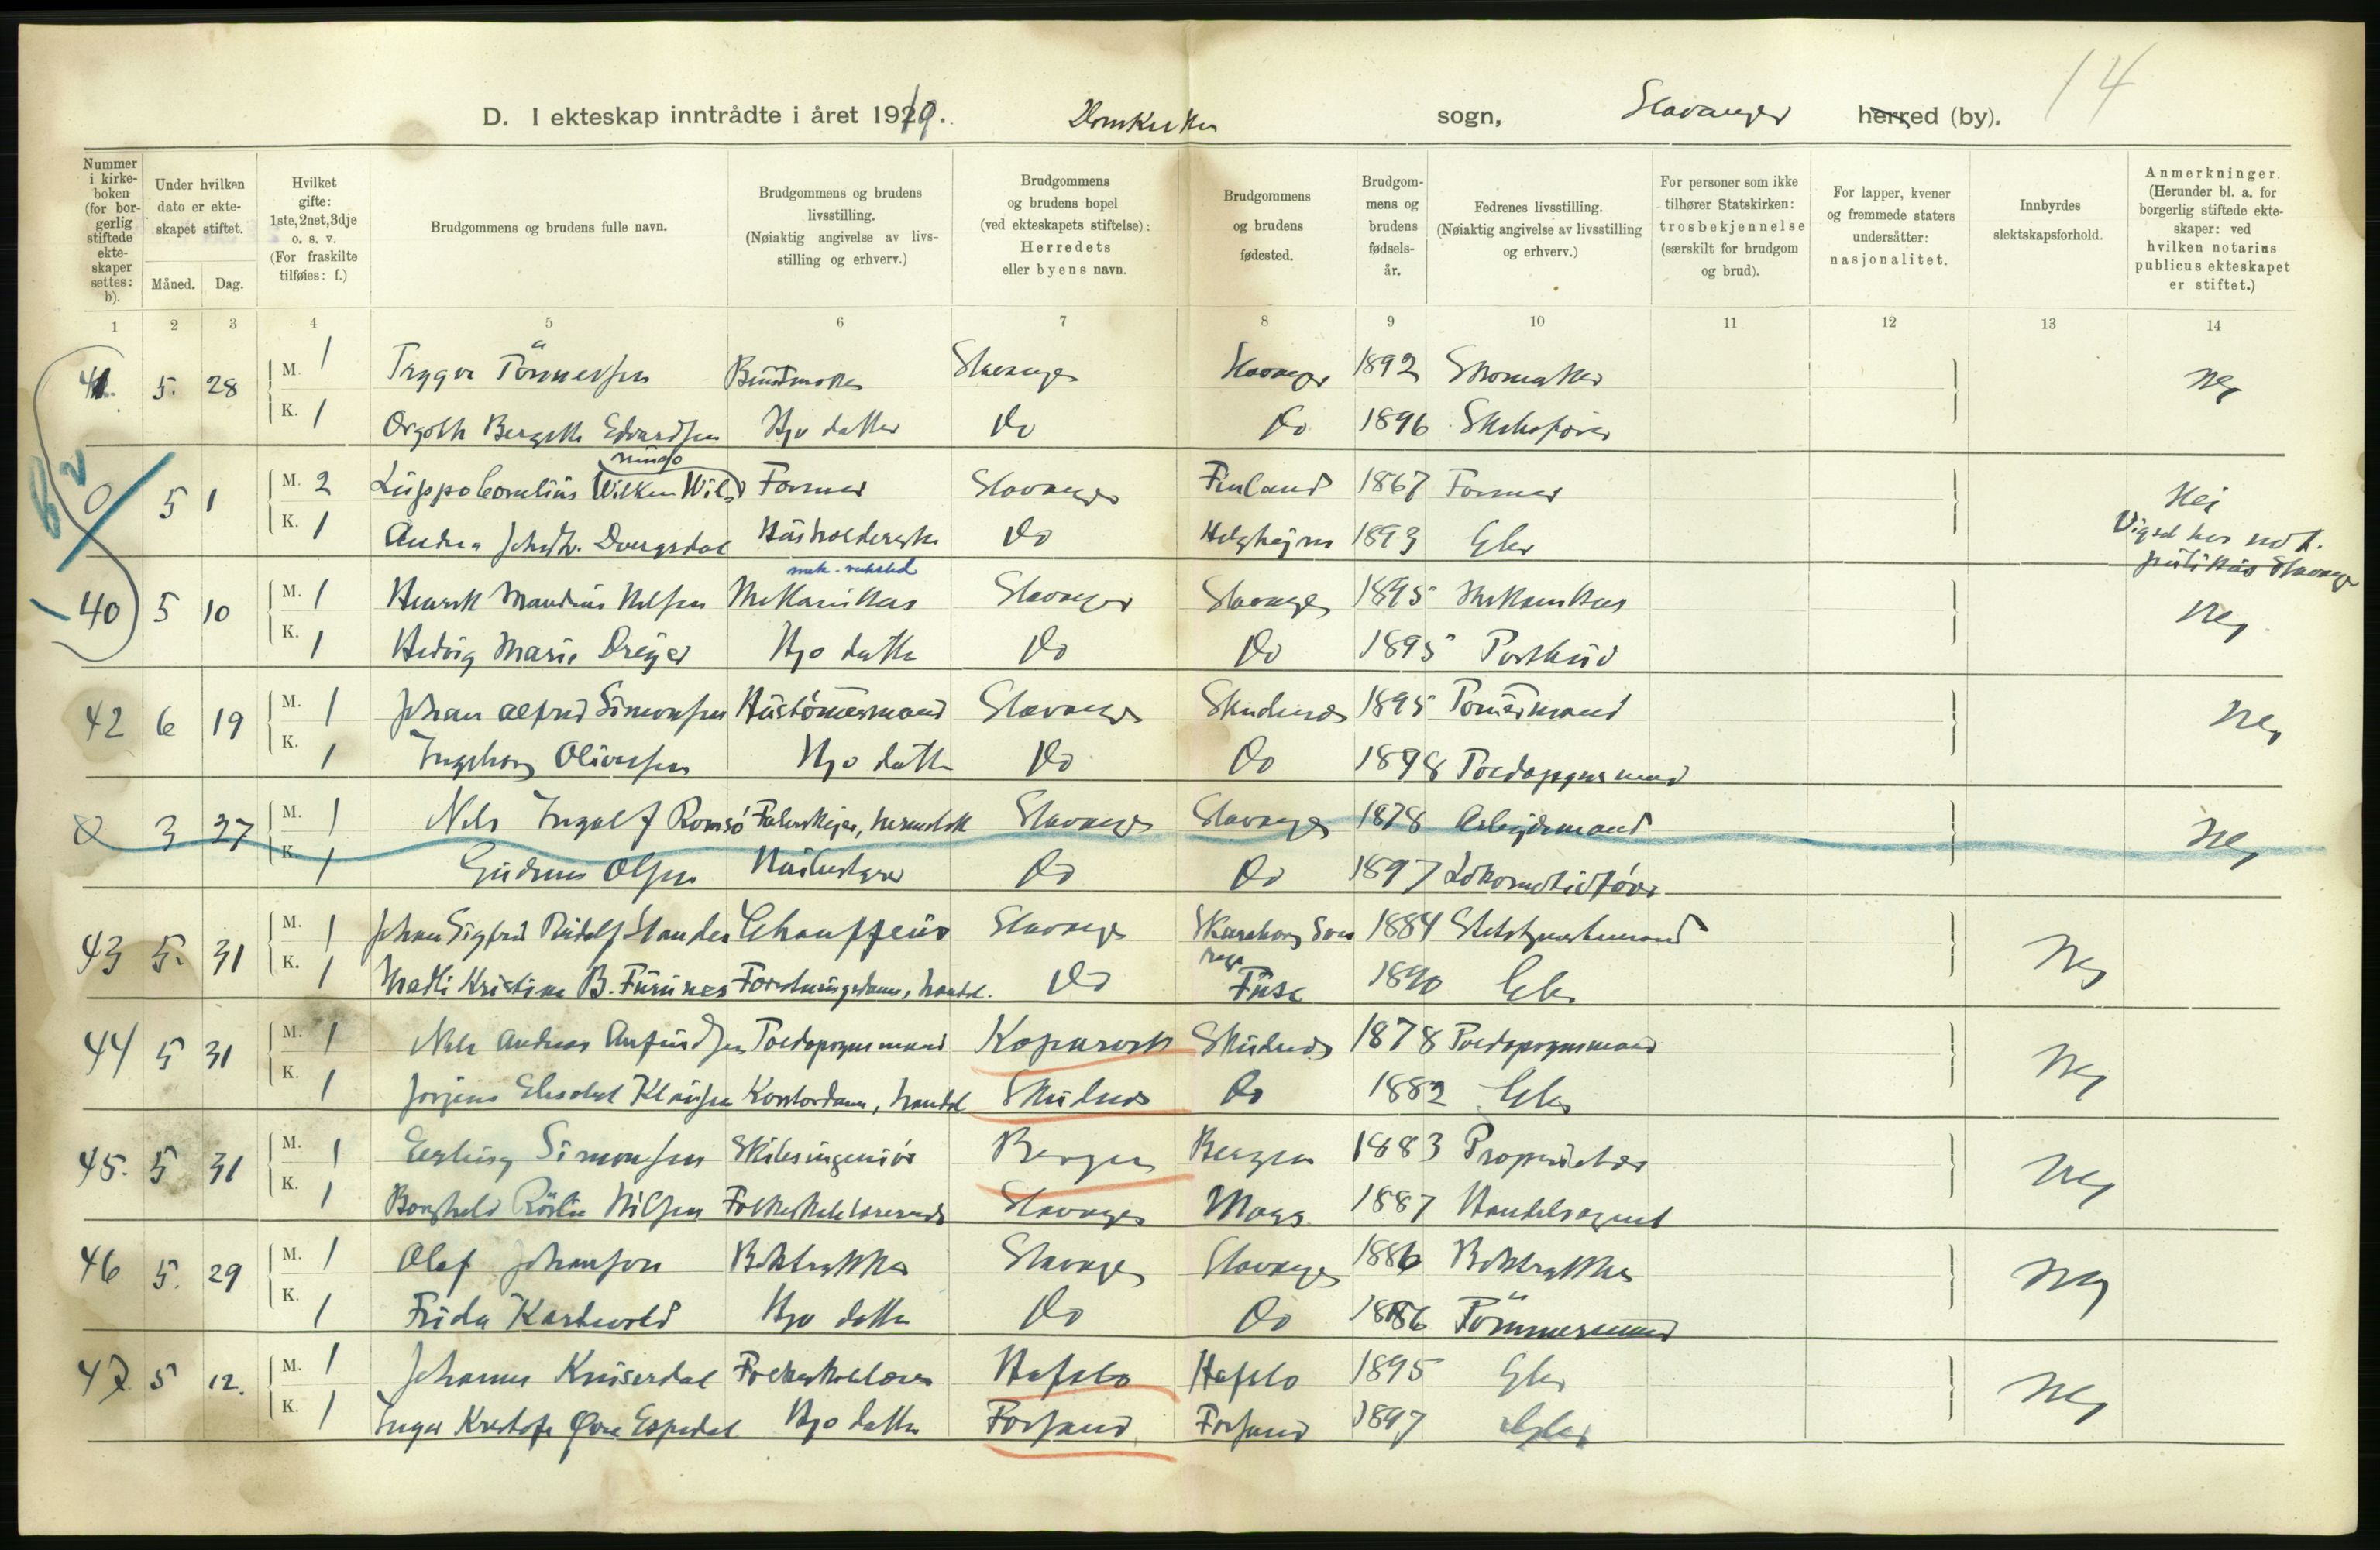 14
D. I ekteskap inntrådte i året 1919. Domkirken sogn, Stavanger herred (by).
Nummer i kirkeboken (for borgerlig stiftede ekteskaper settes: b).
Under hvilken dato er ekteskapet stiftet.
Måned. Dag.
Hvilket gifte: 1ste, 2net, 3dje o. s. v. (For fraskilte tilføies: f.)
Brudgommens og brudens fulle navn.
Brudgommens og brudens livsstilling. (Nøiaktig angivelse av livsstilling og erhverv.)
Brudgommens og brudens bopel (ved ekteskapets stiftelse): Herredets eller byens navn.
Brudgommens og brudens fødested.
Brudgommens og brudens fødselsår.
Fedrenes livsstilling. (Nøiaktig angivelse av livsstilling og erhverv.)
For personer som ikke tilhører Statskirken: trosbekjennelse (særskilt for brudgom og brud).
For lapper, kvener og fremmede staters undersåtter: nasjonalitet.
Innbyrdes slektskapsforhold.
Anmerkninger. (Herunder bl. a. for borgerlig stiftede ekteskaper: ved hvilken notarius publicus ekteskapet er stiftet.)
1 2 3 4 5 6 7 8 9 10 11 12 13 14
41. 5. 28 M. 1 Trygve Tönnessen Stavanger Stavanger 1892 Skomaker Nei
K. 1 Bergitte Edvardsen Hjv datter Do Do 1896
5 1 M. 2 Former Stavanger Finland 1867 Former Nei
K. 1 Husholderske Do 1893 Gbr Vigsel hos not. publikus Stavanger
mek. verksted
40 5 10 M. 1 Henrik Nilsen Mekanikus Stavanger Stavanger 1895 Mekanikus Nei
K. 1 Hedvig Marie Dreyer Hjv datter Do Do 1895 Postbud
42 6 19 M. 1 Johan Alfred Simonsen Hustömmermand Stavanger Skudenes 1895 Tömmermand Nei
K. 1 Ingeborg Oliversen Hjv datter Do Do 1898
3 27 M. 1 Nils Ingolf Romsö Stavanger Stavanger 1878 Arbeidsmand Nei
K. 1 Gudrun Olsen Do Do 1897 Lokomotivförer
43 5. 31 M. 1 Johan Sigfrid Rudolf Chauffeur Stavanger Skaraborg 1884 Nei
K. 1 Kristine B. Furunes Forretningsdame, handel. Do Fuse 1890 Gbr
44 5 31 M. 1 Nils Andreas Anfindsen Kopervik Skudenes 1878 Nei
K. 1 Elisabet Klausen Kontordame, handel Skudenes Do 1882 Gbr
45. 5 31 M. 1 Erling Simonsen Skibsingeniör Bergen Bergen 1883 Proprietær Nei
K. 1 Borghild Nilsen Folkeskolelærerinde Stavanger Moss 1887 Handelsagent
46 5. 29 M. 1 Olaf Johansen Boktrykker Stavanger Stavanger 1886 Boktrykker Nei
K. 1 Frida Kartevold Hjv datter Do Do 1886 Tömmermand
47 5 12. M. 1 Johannes Folkeskolelærer Hafslo Hafslo 1895 Gbr Nei
K. 1 Inger Espedal Hjv datter Forsand Forsand 1897 Gbr